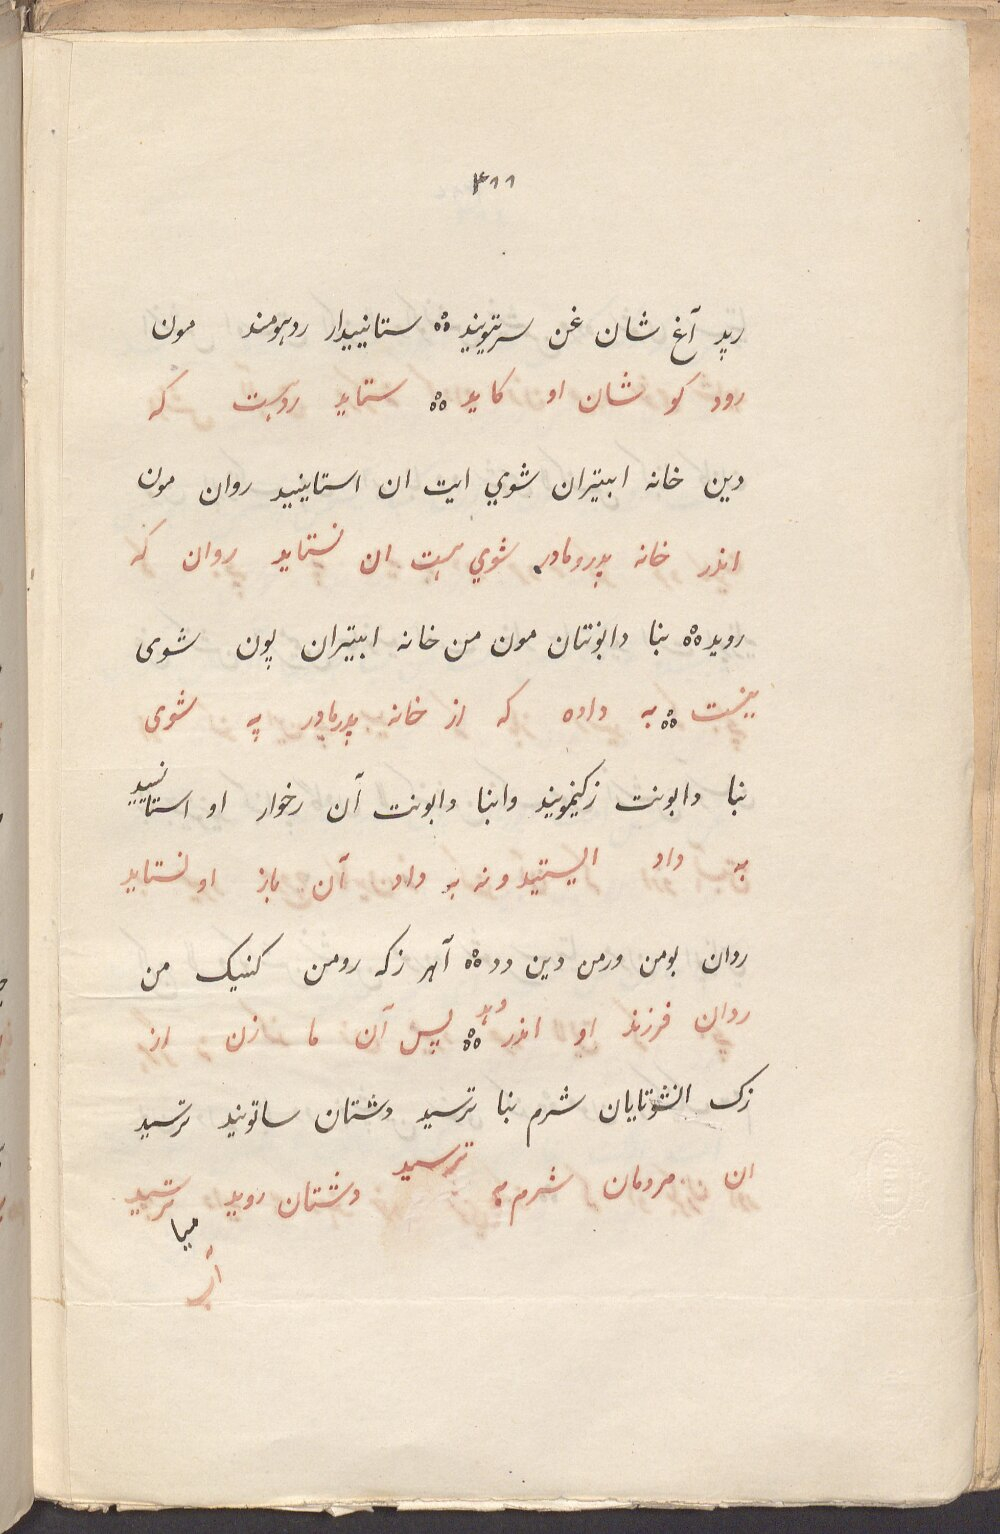 ۴۱۱
رید آغ شان غن سریتویند ستاییدار ردیومند مون
رود کو شان او کاید ستاید ردیست که
دین خانه ابیتران شوي ایت ان استایند روان مون
اندر خانه پدرومادر شوي هست ان نستاید روان که
روید بنا دابونتان مون من خانه ابیتران پون شوی
به داده که از خانه پدرمادر په شوی
بنا دابونت زکیخویند وابنا دابونت آن رخوار او استانیید
به داد ایستید و نه به داد آن باز او نستاید
ردان بومن ورمن دین دد آهر زکه رومن کنیک من
ردان فرزند او اندر دید پس آن ما زن از
زک انشوتایان شرم بنا ترسید دشتان ساتویند ترسید
ان مردمان شرم به ترسید دشتان روید ترسید
میا
آب